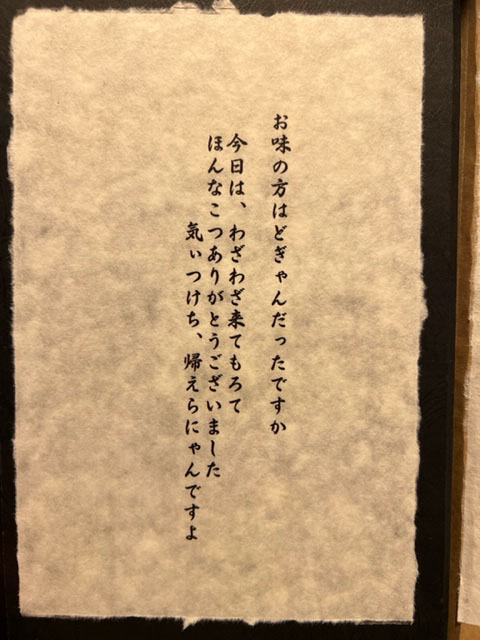 お味の方はどぎゃんだったですか
今日は、わざわざ来てもろて
ほんなこつありがとうございました
気ぃつけち、帰えらにゃんですよ